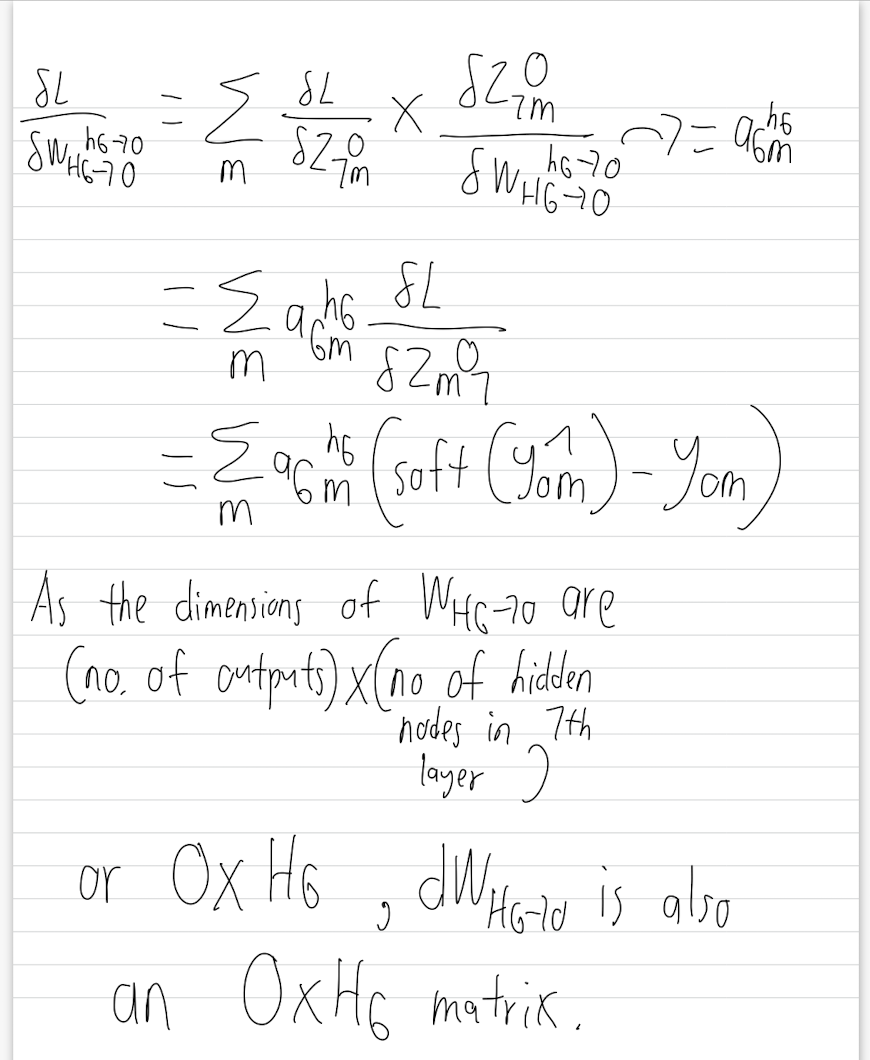 δL/δW_{H6→O}^{h6→O} = Σ_m δL/δZ_{7m}^O × δZ_{7m}^O/δW_{H6→O}^{h6→O} → = a_{6m}^{h6}
= Σ_m a_{6m}^{h6} δL/δZ_{m7}^O
= Σ_m a_{6m}^{h6} (soft(y^_{om}) - y_{om})
As the dimensions of W_{H6→O} are
(no. of outputs)×(no of hidden
nodes in 7th
layer)
or O×H6, dW_{H6→O} is also
an O×H6 matrix.